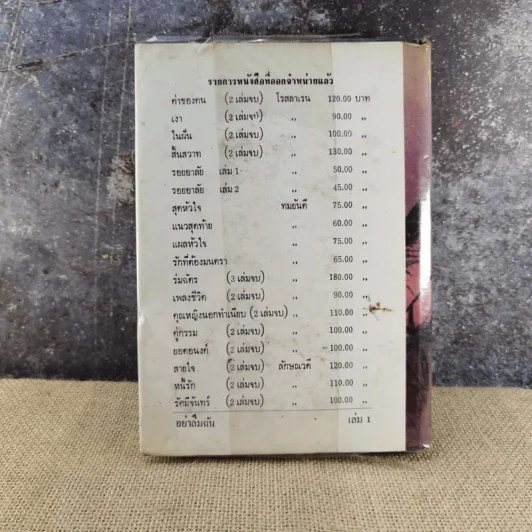 รายการหนังสือที่ออกจำหน่ายแล้ว
ค่าของคน (2 เล่มจบ) โรสลาเรน 120.00 บาท
เงา (2 เล่มจบ) ,, 90.00 ,,
ในฝัน (2 เล่มจบ) ,, 100.00 ,,
สิ้นสวาท (2 เล่มจบ) ,, 130.00 ,,
รอยอาลัย เล่ม 1 ,, 50.00 ,,
รอยอาลัย เล่ม 2 ,, 45.00 ,,
สุดหัวใจ ทมยันตี 75.00 ,,
แนวสุดท้าย ,, 60.00 ,,
แผลหัวใจ ,, 75.00 ,,
รักที่ต้องมนตรา ,, 65.00 ,,
ร่มฉัตร (3 เล่มจบ) ,, 180.00 ,,
เพลงชีวิต (2 เล่มจบ) ,, 90.00 ,,
คุณหญิงนอกทำเนียบ (2 เล่มจบ) ,, 110.00 ,,
คู่กรรม (2 เล่มจบ) ,, 100.00 ,,
ยอดอนงค์ (2 เล่มจบ) ,, 100.00 ,,
สายใจ (2 เล่มจบ) ลักษณวดี 120.00 ,,
หนี้รัก (2 เล่มจบ) ,, 110.00 ,,
รัศมีจันทร์ (2 เล่มจบ) ,, 100.00 ,,
อย่าลืมฉัน เล่ม 1